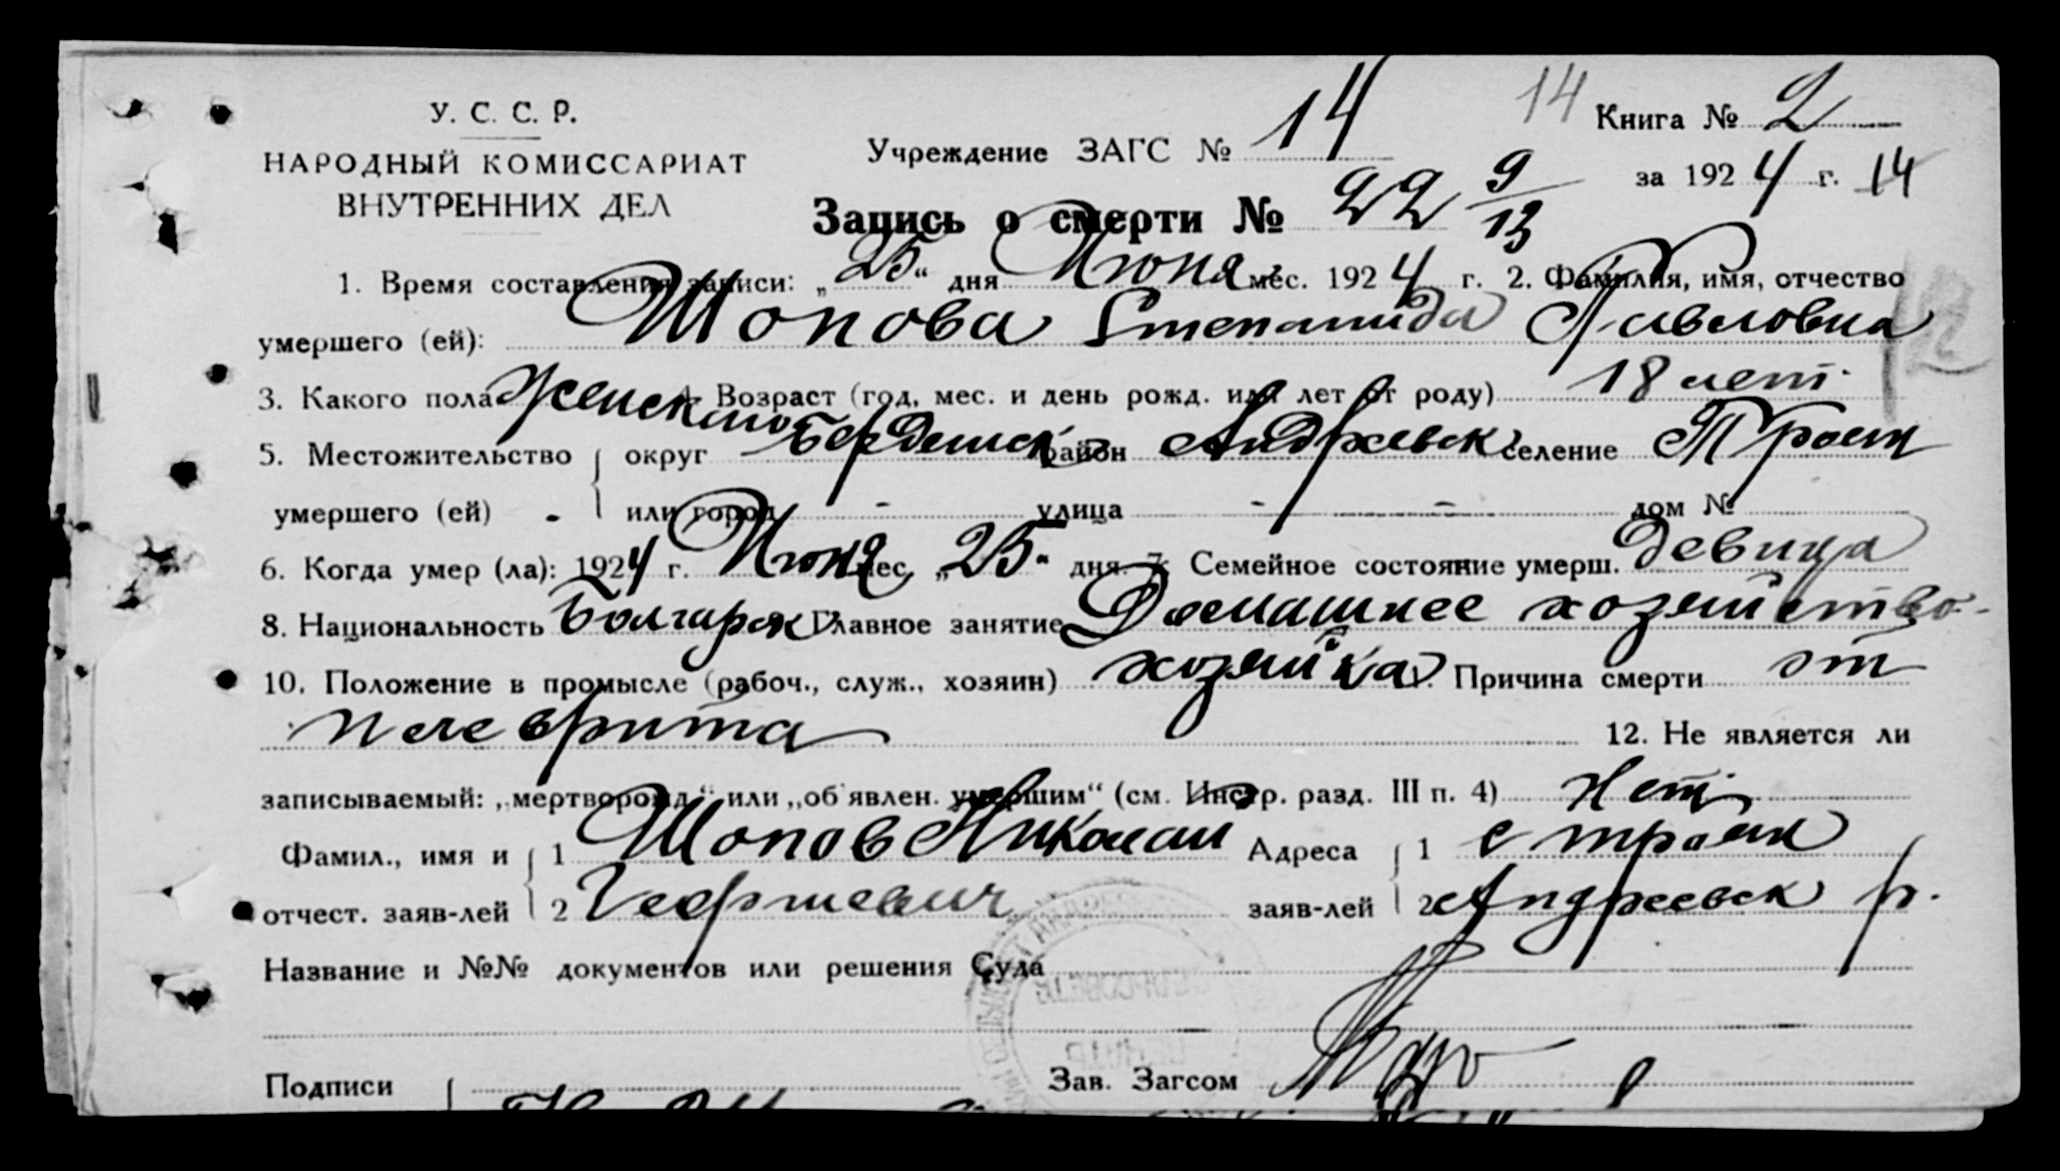 У. С. С. Р.
НАРОДНЫЙ КОМИССАРИАТ
ВНУТРЕННИХ ДЕЛ
Учреждение ЗАГС № 14
14 Книга № 2
за 1924 г. 14
Запись о смерти № 22 9/13
1. Время составления записи: „25“ дня Июня мес. 1924 г. 2. Фамилия, имя, отчество
умершего (ей): Шопова Степанида Павловна
3. Какого пола Женского Возраст (год, мес. и день рожд. или лет от роду) 18 лет.
5. Местожительство округ Бердянск район Андреевск селение Троян
умершего (ей) или город - улица - - дом №
6. Когда умер (ла): 1924 г. Июня мес. „25“ дня 7. Семейное состояние умерш. Девица
8. Национальность Болгарск Главное занятие Домашнее хозяйство
10. Положение в промысле (рабоч., служ., хозяин) хозяйка Причина смерти от
плеврита 12. Не является ли
записываемый: „мертворожд.“ или „об'явлен. умершим“ (см. Инстр. разд. III п. 4) Нет
Фамил., имя и 1 Шопов Николай Адреса 1 с Троян
отчест. заяв-лей 2 Георгиевич заяв-лей 2 Андреевск р.
Название и №№ документов или решения Суда
Подписи Зав. Загсом